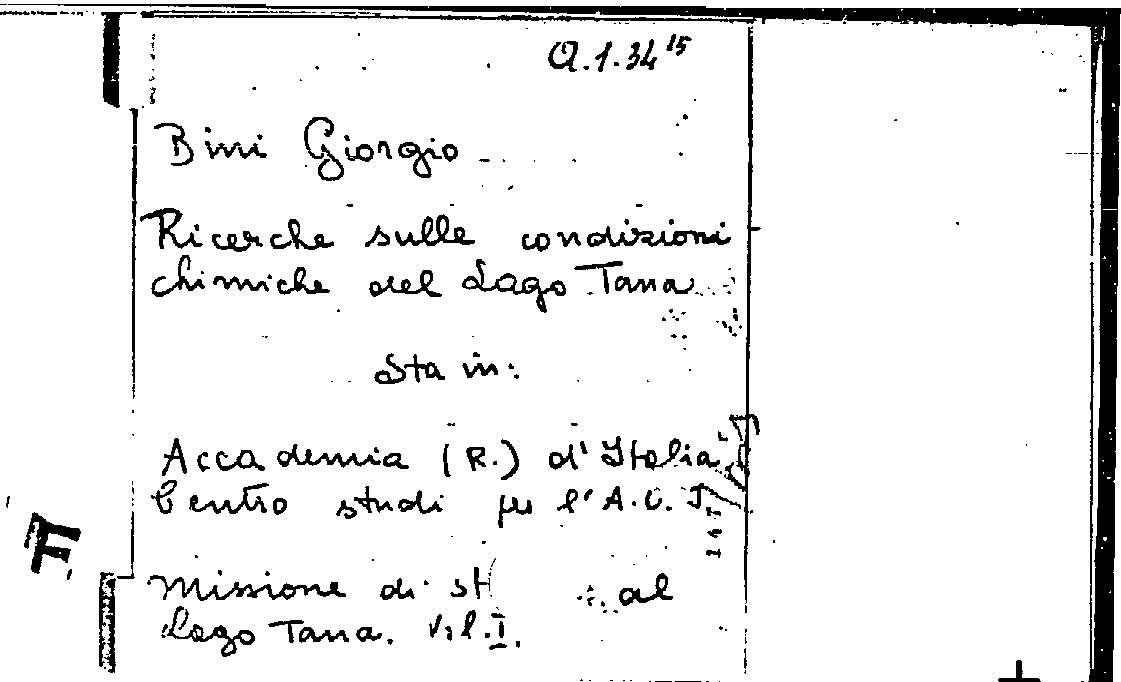 Q.1.34 15
Bini Giorgio
Ricerche sulle condizioni
chimiche del Lago Tana
Sta in:
Accademia (R.) d'Italia
Centro studi per l'A.O.I.
Missione di st al
Lago Tana. Vol.I.
F